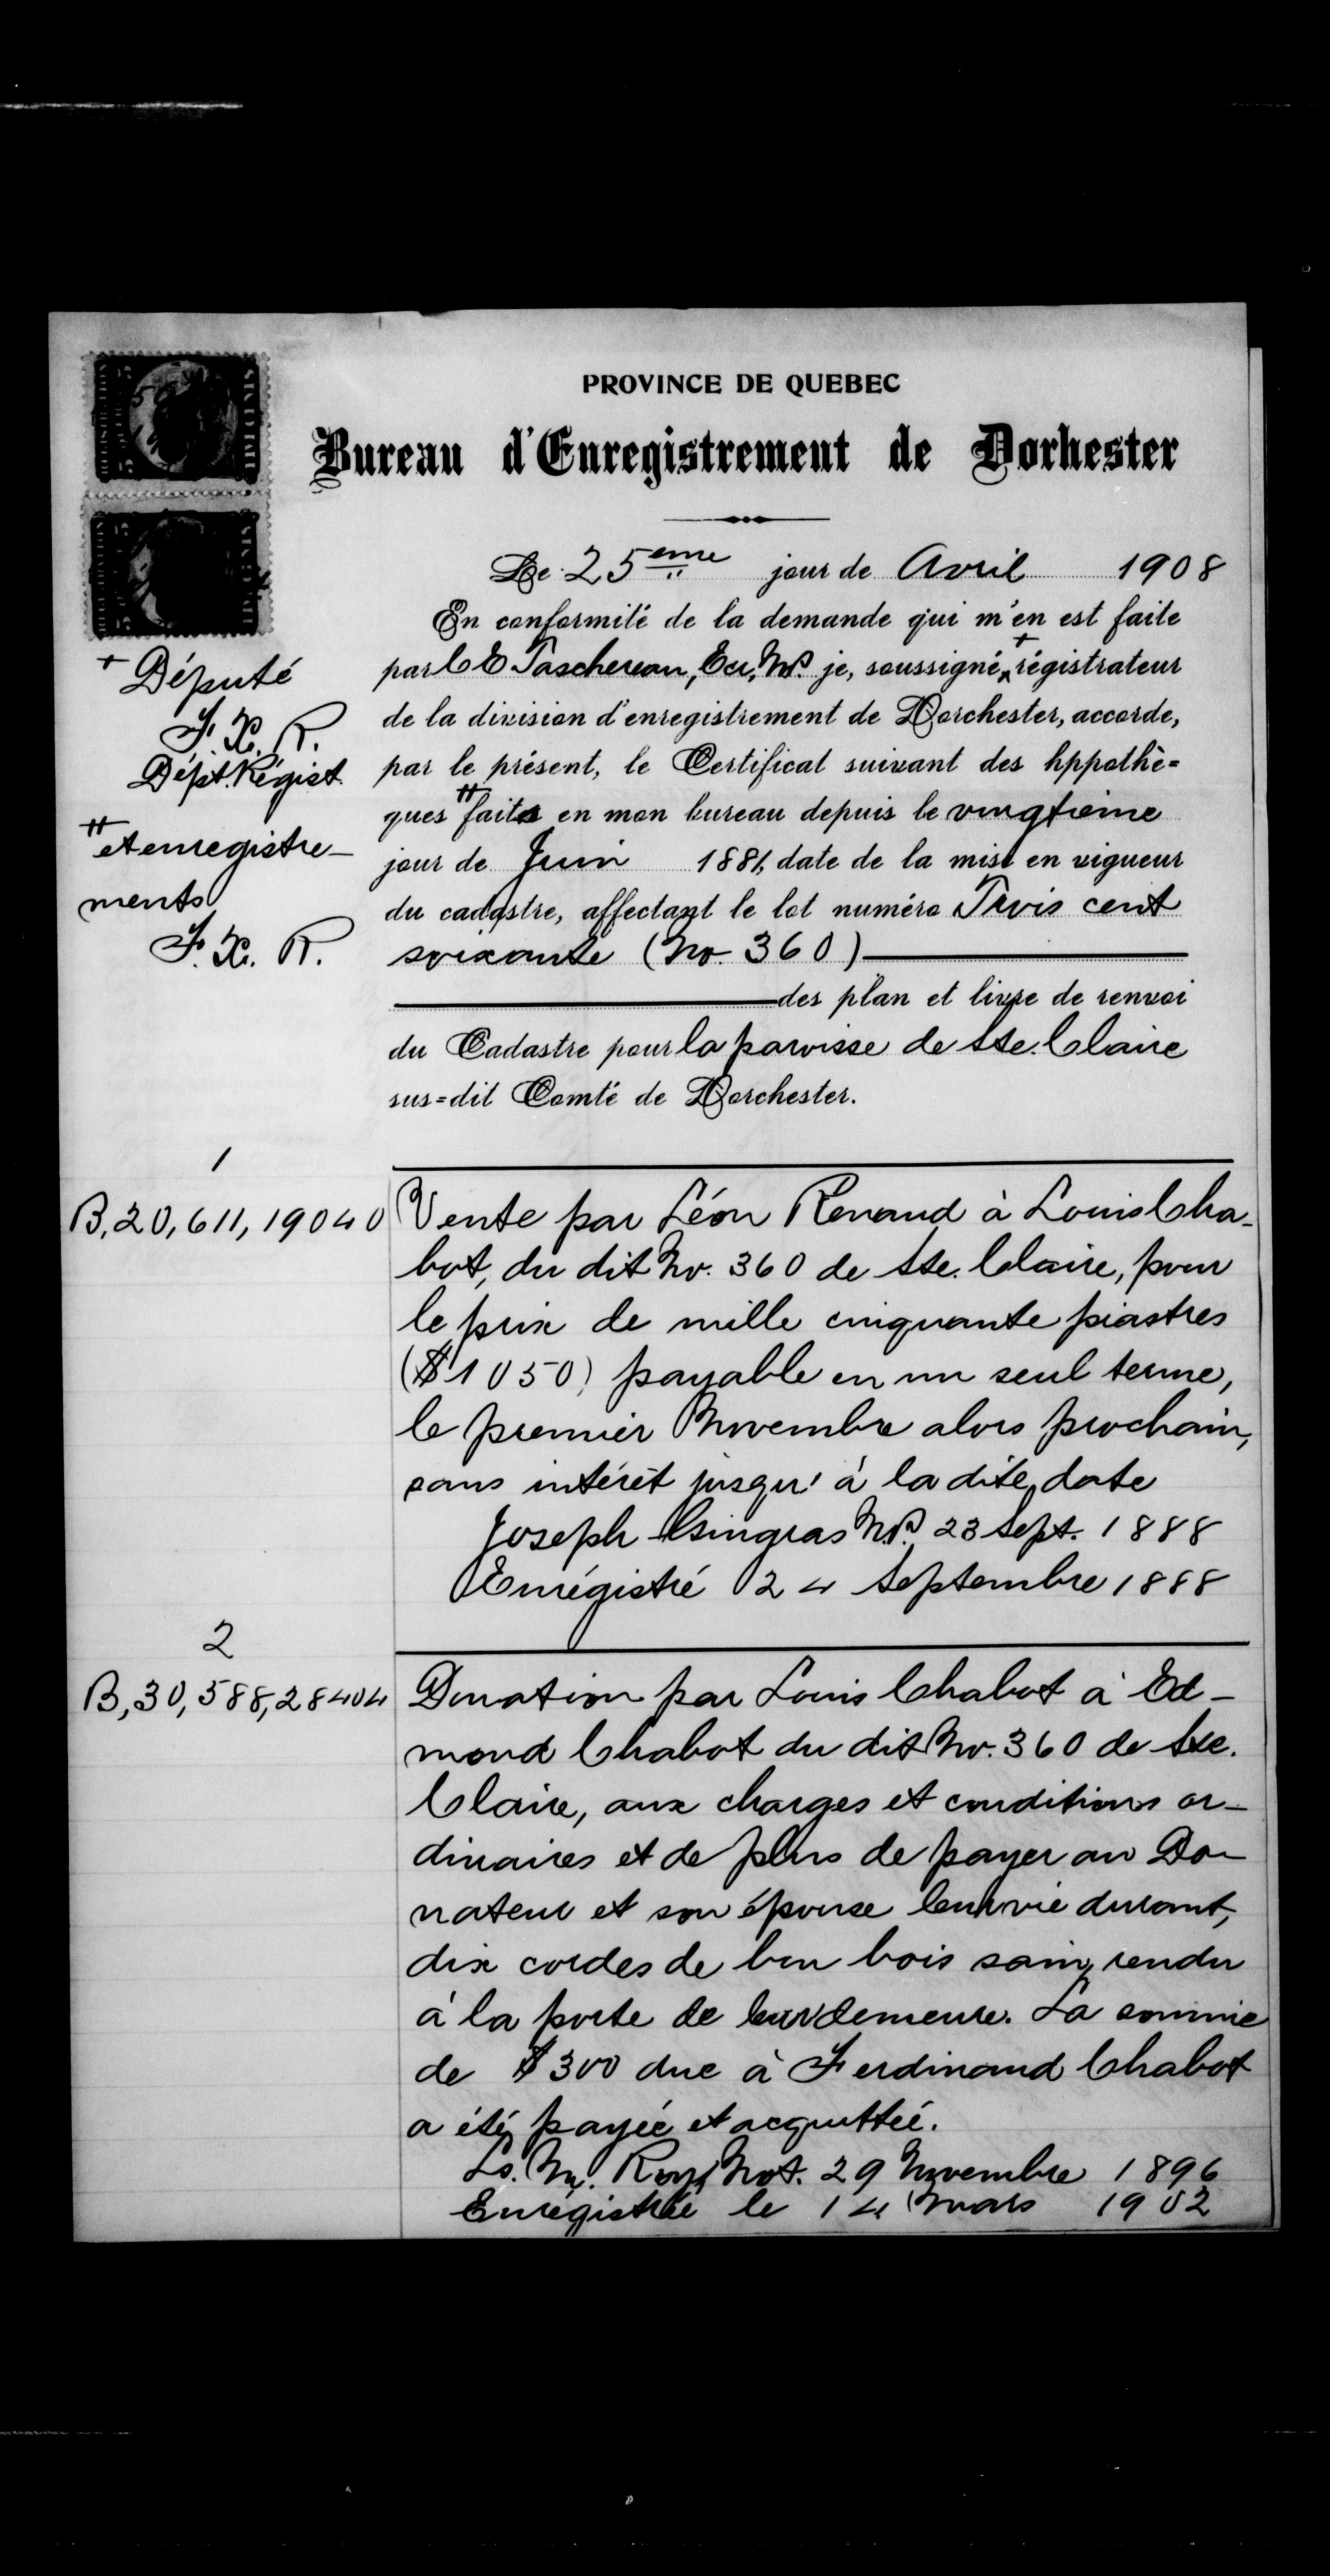 PROVINCE DE QUEBEC
Bureau d'Enregistrement de Dorhester
Le 25eme jour de Avril 1908
En conformité de la demande qui m'en est faite
par C E Taschereau, Ecr, N.P. je, soussigné, + régistrateur
de la division d'enregistrement de Dorchester, accorde,
par le présent, le Certificat suivant des hppothè=
ques faits en mon bureau depuis le vingtieme
jour de Juin 1881, date de la mise en vigueur
du cadastre, affectant le lot numéro Trois cent
soixante (No. 360)
des plan et livre de renvoi
du Cadastre pour la paroisse de Ste. Claire
sus=dit Comté de Dorchester.
+ Député
F. X. R.
Dépt. Régist.
++ et enregistre-
ments
F. X. R.
1
B, 20, 611, 19040
Vente par Léon Renaud à Louis Cha-
bot, du dit No. 360 de Ste. Claire, pour
le prix de mille cinquante piastres
($1050) payable en un seul terme,
le premier Novembre alors prochain,
sans intérêt jusqu'à la dite date
Joseph Gingras N.P. 23 Sept. 1888
Enrégistré 24 Septembre 1888
2
B, 30, 588, 28404
Donation par Louis Chabot à Ed-
mond Chabot du dit No. 360 de Ste.
Claire, aux charges et conditions or-
dinaires et de plus de payer au Do-
nateur et son épouse leur vie durant,
dix cordes de bon bois sain, rendu
à la porte de leur demeure. La somme
de $300 due à Ferdinand Chabot
a été payée et acquittée.
Ls. M. Roy, Not. 29 Novembre 1896
Enrégistrée le 14 Mars 1902